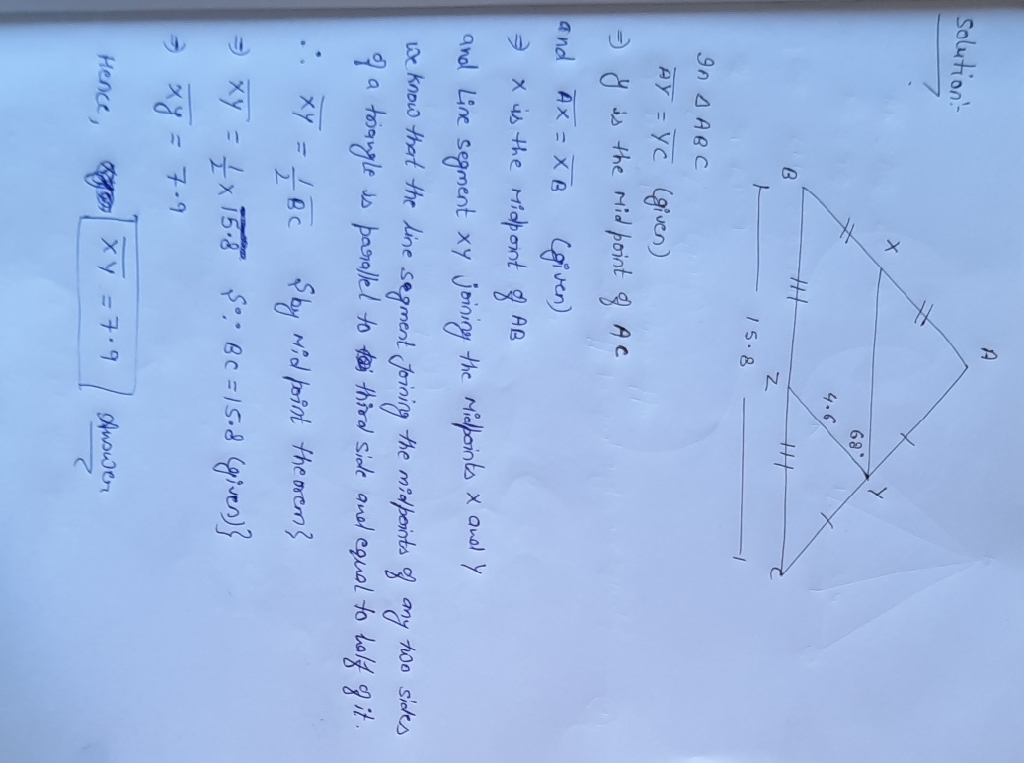 Solution:-
A
X
Y
68°
4.6
B
Z
C
15.8
In △ ABC
AY = YC (given)
⇒ y is the midpoint of AC
and AX = XB (given)
⇒ X is the midpoint of AB
and Line segment xy joining the midpoints X and Y
we know that the line segment joining the midpoints of any two sides
of a triangle is parallel to third side and equal to half of it.
∴ XY = 1/2 BC {by midpoint theorem}
⇒ XY = 1/2 × 15.8 {∵ BC = 15.8 (given)}
⇒ xy = 7.9
Hence, XY = 7.9 Answer